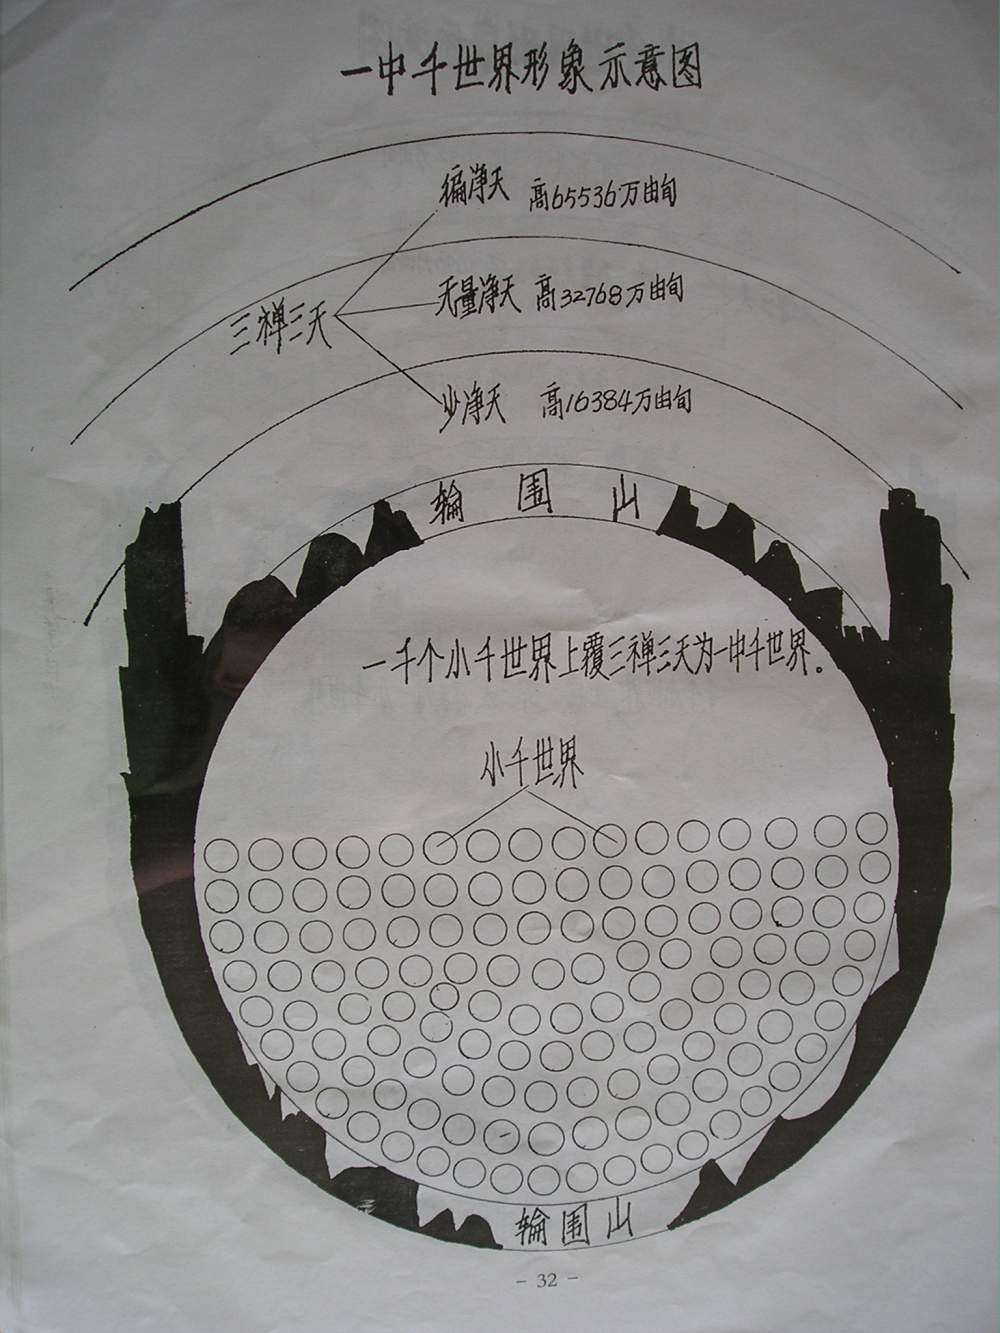 一中千世界形象示意图
徧净天 高65536万由旬
三禅三天
无量净天 高32768万由旬
少净天 高16384万由旬
轮围山
一千个小千世界上覆三禅三天为一中千世界。
小千世界
轮围山
- 32 -